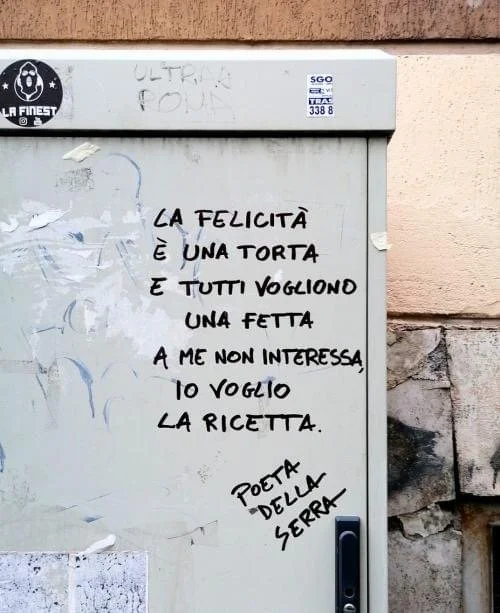 LA FINEST
ULTRAS
ROMA
SGO
TRAS
338 8
LA FELICITÀ
È UNA TORTA
E TUTTI VOGLIONO
UNA FETTA
A ME NON INTERESSA,
IO VOGLIO
LA RICETTA.
POETA
DELLA
SERRA